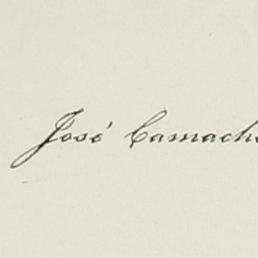 José Camacho